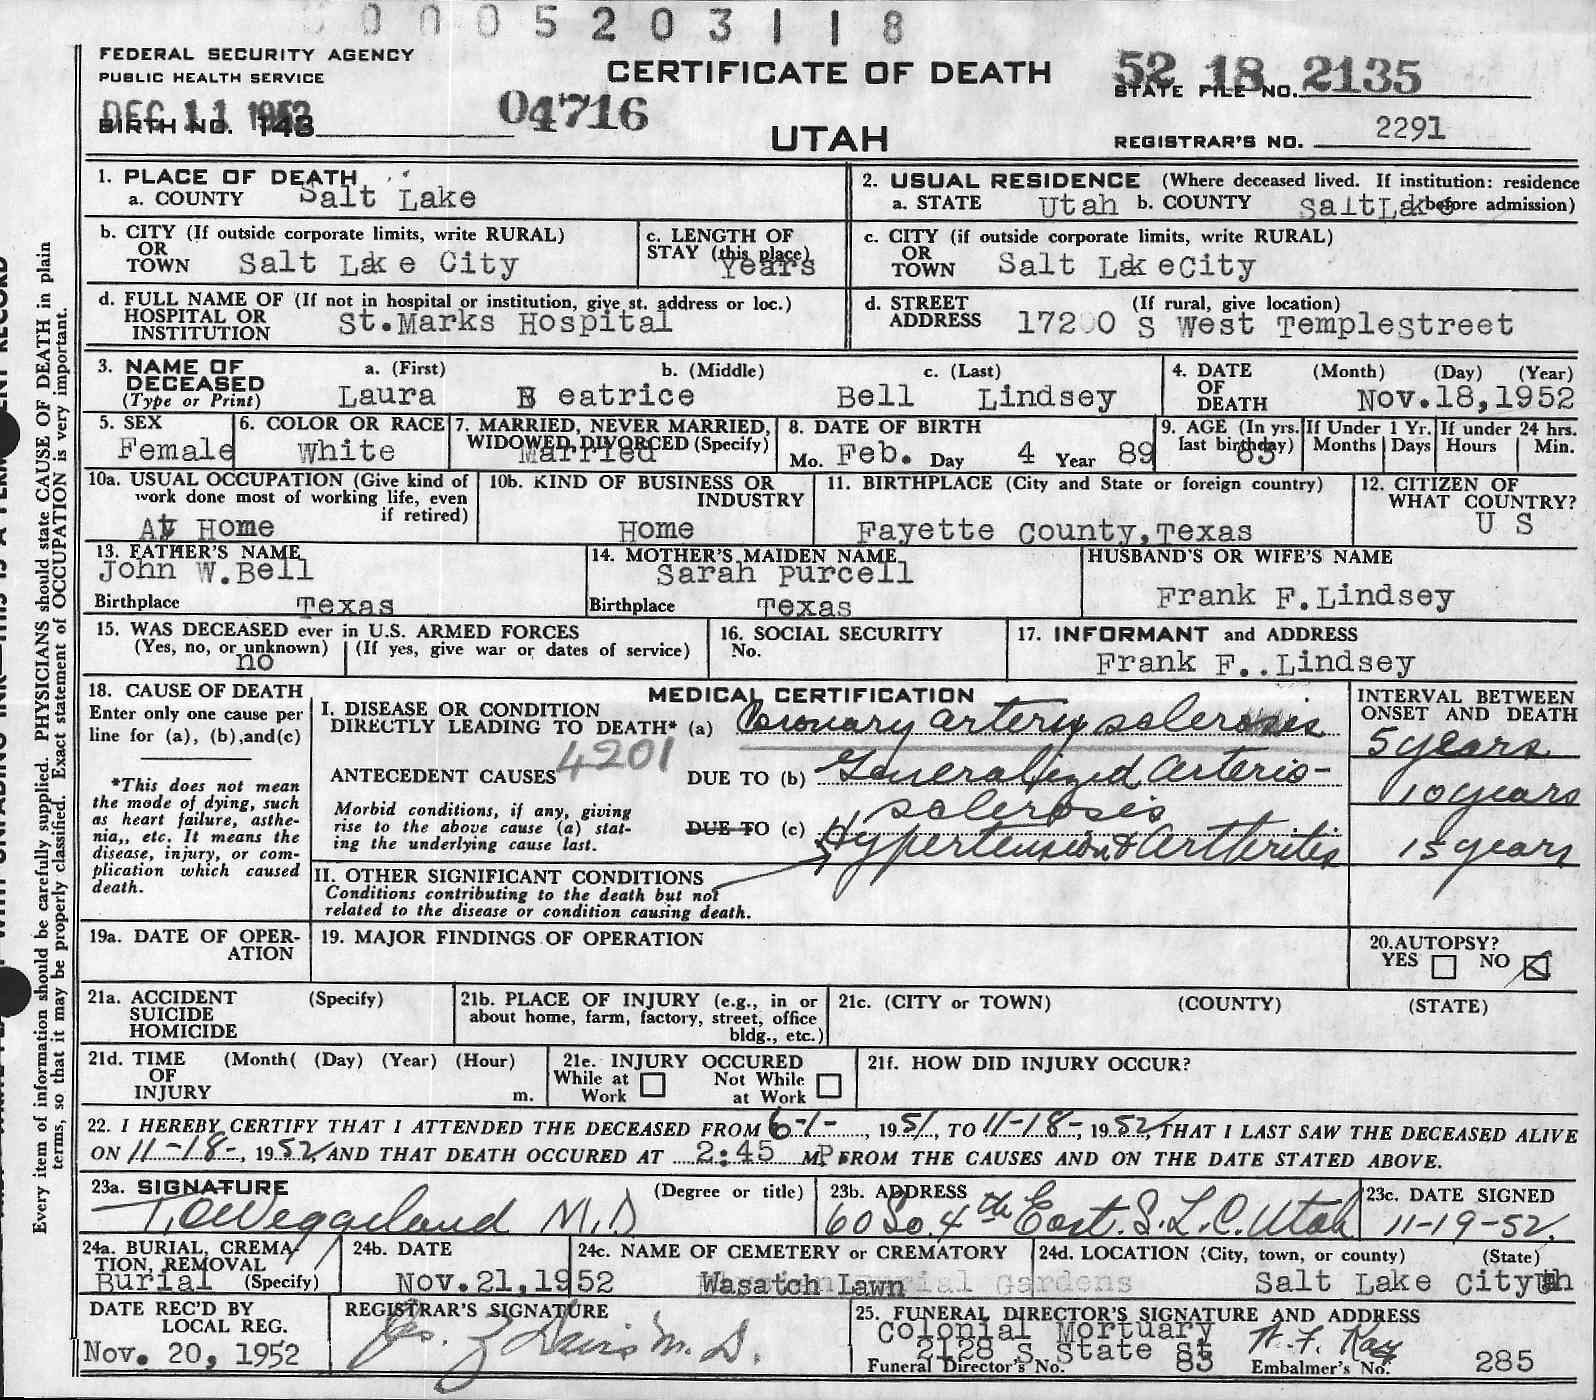 0005203118
FEDERAL SECURITY AGENCY
PUBLIC HEALTH SERVICE
CERTIFICATE OF DEATH
52 18 2135
STATE FILE NO.
DEC 11 1952
BIRTH NO. 143
04716
UTAH
REGISTRAR'S NO. 2291
1. PLACE OF DEATH
a. COUNTY Salt Lake
2. USUAL RESIDENCE (Where deceased lived. If institution: residence
a. STATE Utah b. COUNTY Salt Lake before admission)
b. CITY (If outside corporate limits, write RURAL)
OR
TOWN Salt Lake City
c. LENGTH OF
STAY (this place)
Years
c. CITY (if outside corporate limits, write RURAL)
OR
TOWN Salt Lake City
d. FULL NAME OF (If not in hospital or institution, give st. address or loc.)
HOSPITAL OR
INSTITUTION St.Marks Hospital
d. STREET (If rural, give location)
ADDRESS 1720 S West Temple street
3. NAME OF DECEASED
(Type or Print)
a. (First) b. (Middle) c. (Last)
Laura Beatrice Bell Lindsey
4. DATE OF DEATH
(Month) (Day) (Year)
Nov.18,1952
5. SEX
Female
6. COLOR OR RACE
White
7. MARRIED, NEVER MARRIED,
WIDOWED DIVORCED (Specify)
Married
8. DATE OF BIRTH
Mo. Feb. Day 4 Year 89
9. AGE (In yrs.
last birthday)
If Under 1 Yr.
Months Days
If under 24 hrs.
Hours Min.
10a. USUAL OCCUPATION (Give kind of
work done most of working life, even
if retired)
At Home
10b. KIND OF BUSINESS OR
INDUSTRY
Home
11. BIRTHPLACE (City and State or foreign country)
Fayette County,Texas
12. CITIZEN OF
WHAT COUNTRY?
U S
13. FATHER'S NAME
John W.Bell
Birthplace Texas
14. MOTHER'S MAIDEN NAME
Sarah Purcell
Birthplace Texas
HUSBAND'S OR WIFE'S NAME
Frank F.Lindsey
15. WAS DECEASED ever in U.S. ARMED FORCES
(Yes, no, or unknown) (If yes, give war or dates of service)
no
16. SOCIAL SECURITY
No.
17. INFORMANT and ADDRESS
Frank F..Lindsey
18. CAUSE OF DEATH
Enter only one cause per
line for (a), (b),and(c)
*This does not mean
the mode of dying, such
as heart failure, asthe-
nia,, etc. It means the
disease, injury, or com-
plication which caused
death.
MEDICAL CERTIFICATION
I. DISEASE OR CONDITION
DIRECTLY LEADING TO DEATH* (a) Coronary artery sclerosis
4201
ANTECEDENT CAUSES DUE TO (b) Generalized Arterio-
sclerosis
Morbid conditions, if any, giving
rise to the above cause (a) stat-
ing the underlying cause last.
DUE TO (c) Hypertension & Arthritis
INTERVAL BETWEEN
ONSET AND DEATH
5 years
10 years
15 years
II. OTHER SIGNIFICANT CONDITIONS
Conditions contributing to the death but not
related to the disease or condition causing death.
19a. DATE OF OPER-
ATION
19. MAJOR FINDINGS OF OPERATION
20.AUTOPSY?
YES NO
21a. ACCIDENT (Specify)
SUICIDE
HOMICIDE
21b. PLACE OF INJURY (e.g., in or
about home, farm, factory, street, office
bldg., etc.)
21c. (CITY or TOWN) (COUNTY) (STATE)
21d. TIME (Month( (Day) (Year) (Hour)
OF
INJURY m.
21e. INJURY OCCURED
While at Work Not While at Work
21f. HOW DID INJURY OCCUR?
22. I HEREBY CERTIFY THAT I ATTENDED THE DECEASED FROM 6-1-, 1951, TO 11-18-, 1952, THAT I LAST SAW THE DECEASED ALIVE
ON 11-18-, 1952, AND THAT DEATH OCCURED AT 2:45 P M., FROM THE CAUSES AND ON THE DATE STATED ABOVE.
23a. SIGNATURE (Degree or title)
T.C. Weggeland M.D
23b. ADDRESS
60 So. 4th East. S.L.C. Utah
23c. DATE SIGNED
11-19-52.
24a. BURIAL, CREMA-
TION, REMOVAL
Burial (Specify)
24b. DATE
Nov.21,1952
24c. NAME OF CEMETERY or CREMATORY
Wasatch Lawn
Gardens
24d. LOCATION (City, town, or county) (State)
Salt Lake City
DATE REC'D BY
LOCAL REG.
Nov. 20, 1952
REGISTRAR'S SIGNATURE
Davis M.D.
25. FUNERAL DIRECTOR'S SIGNATURE AND ADDRESS
Colonial Mortuary
2128 S State St
Funeral Director's No. 83 Embalmer's No. 285
Every item of information should be carefully supplied. PHYSICIANS should state CAUSE OF DEATH in plain
terms, so that it may be properly classified. Exact statement of OCCUPATION is very important.